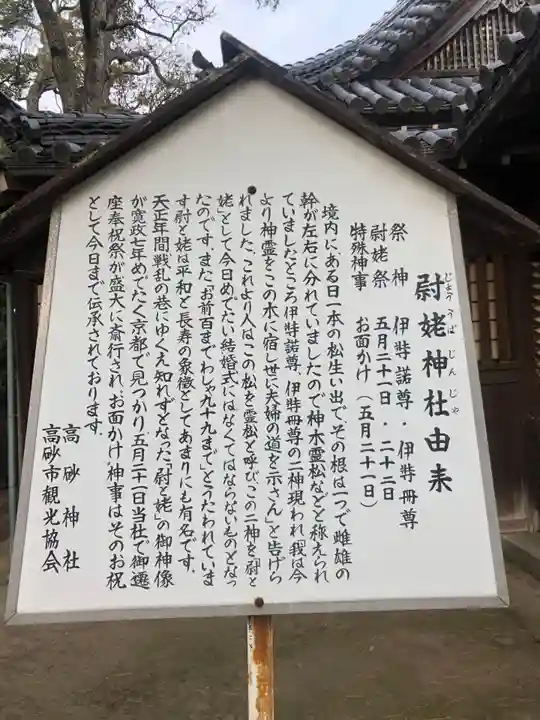 尉姥神社由来
じょう うば じん じゃ
祭神 伊弉諾尊・伊弉冊尊
尉姥祭 五月二十一日・二十二日
特殊神事 お面かけ(五月二十一日)
境内にある日一本の松生い出で、その根は一つで雌雄の
幹が左右に分れていましたので神木霊松などと称えられ
ていましたところ伊弉諾尊、伊弉冊尊の二神現われ「我は今
より神霊をこの木に宿し世に夫婦の道を示さん」と告げら
れました、これより人はこの松を霊松と呼び、この二神を「尉と
姥」として今日めでたい結婚式にはなくてはならないものとなっ
たのです。また「お前百までわしゃ九十九まで」とうたわれていま
す尉と姥は平和と長寿の象徴としてあまりにも有名です。
天正年間戦乱の巷にゆくえ知れずとなった「尉と姥」の御神像
が寛政七年めでたく京都で見つかり、五月二十一日当社で御遷
座奉祝祭が盛大に斎行され、お面かけ神事はそのお祝
として今日まで伝承されております。
高砂神社
高砂市観光協会